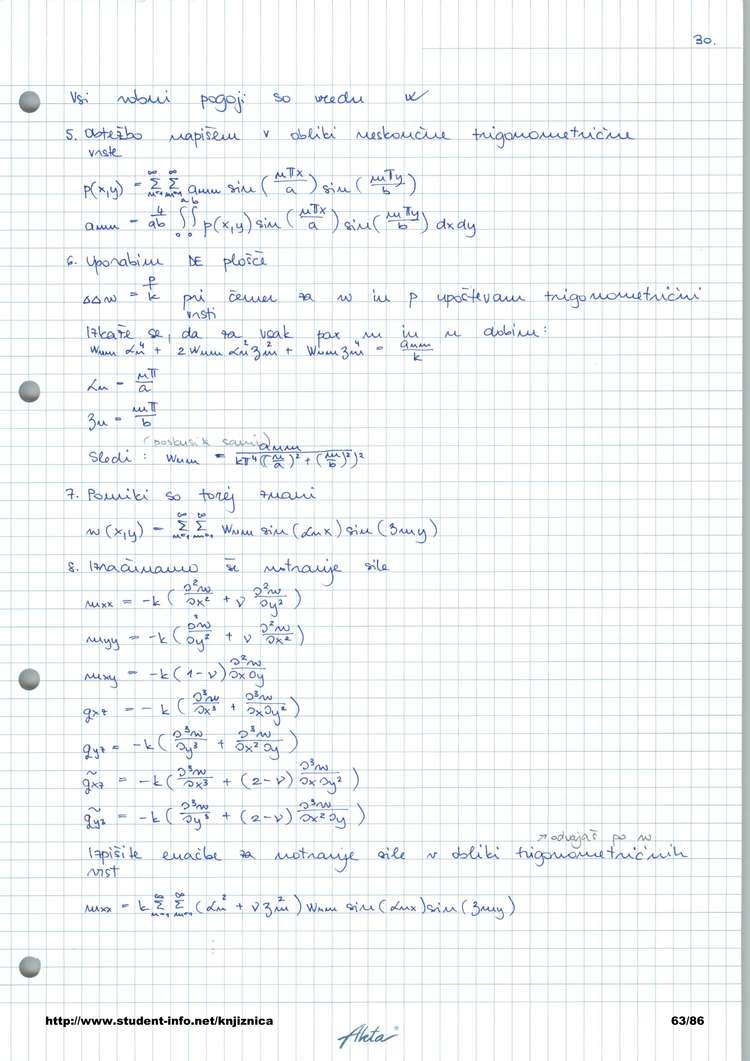 30.
Vsi robni pogoji so vredu ✓
5. Obtežbo napišem v obliki neskončne trigonometrične
vrste
p(x,y) = ∞∑n=1 ∞∑m=1 anm sin(nπx/a) sin(mπy/b)
anm = 4/ab a∫0 b∫0 p(x,y) sin(nπx/a) sin(mπy/b) dxdy
6. Uporabim DE plošče
ΔΔw = p/k pri čemer za w in p upoštevam trigonometrični
vrsti
Izkaže se, da za vsak par m in n dobim:
Wnm αn⁴ + 2Wnm αn² βm² + Wnm βm⁴ = anm/k
αn = nπ/a
βm = mπ/b
(poskusite sami)
Sledi : Wnm = anm/kπ⁴((n/a)² + (m/b)²)²
7. Pomiki so torej znani
w(x,y) = ∞∑n=1 ∞∑m=1 Wnm sin(αnx) sin(βmy)
8. Izračunamo še notranje sile
mxx = -k(∂²w/∂x² + ν ∂²w/∂y²)
myy = -k(∂²w/∂y² + ν ∂²w/∂x²)
mxy = -k(1-ν) ∂²w/∂x∂y
qxz = -k(∂³w/∂x³ + ∂³w/∂x∂y²)
qyz = -k(∂³w/∂y³ + ∂³w/∂x²∂y)
q̃xz = -k(∂³w/∂x³ + (2-ν) ∂³w/∂x∂y²)
q̃yz = -k(∂³w/∂y³ + (2-ν) ∂³w/∂x²∂y)
↗ odvajaš po w
Izpišite enačbe za notranje sile v obliki trigonometričnih
vrst
mxx = k ∞∑n=1 ∞∑m=1 (αn² + νβm²) Wnm sin(αnx) sin(βmy)
http://www.student-info.net/knjiznica
63/86
Akta